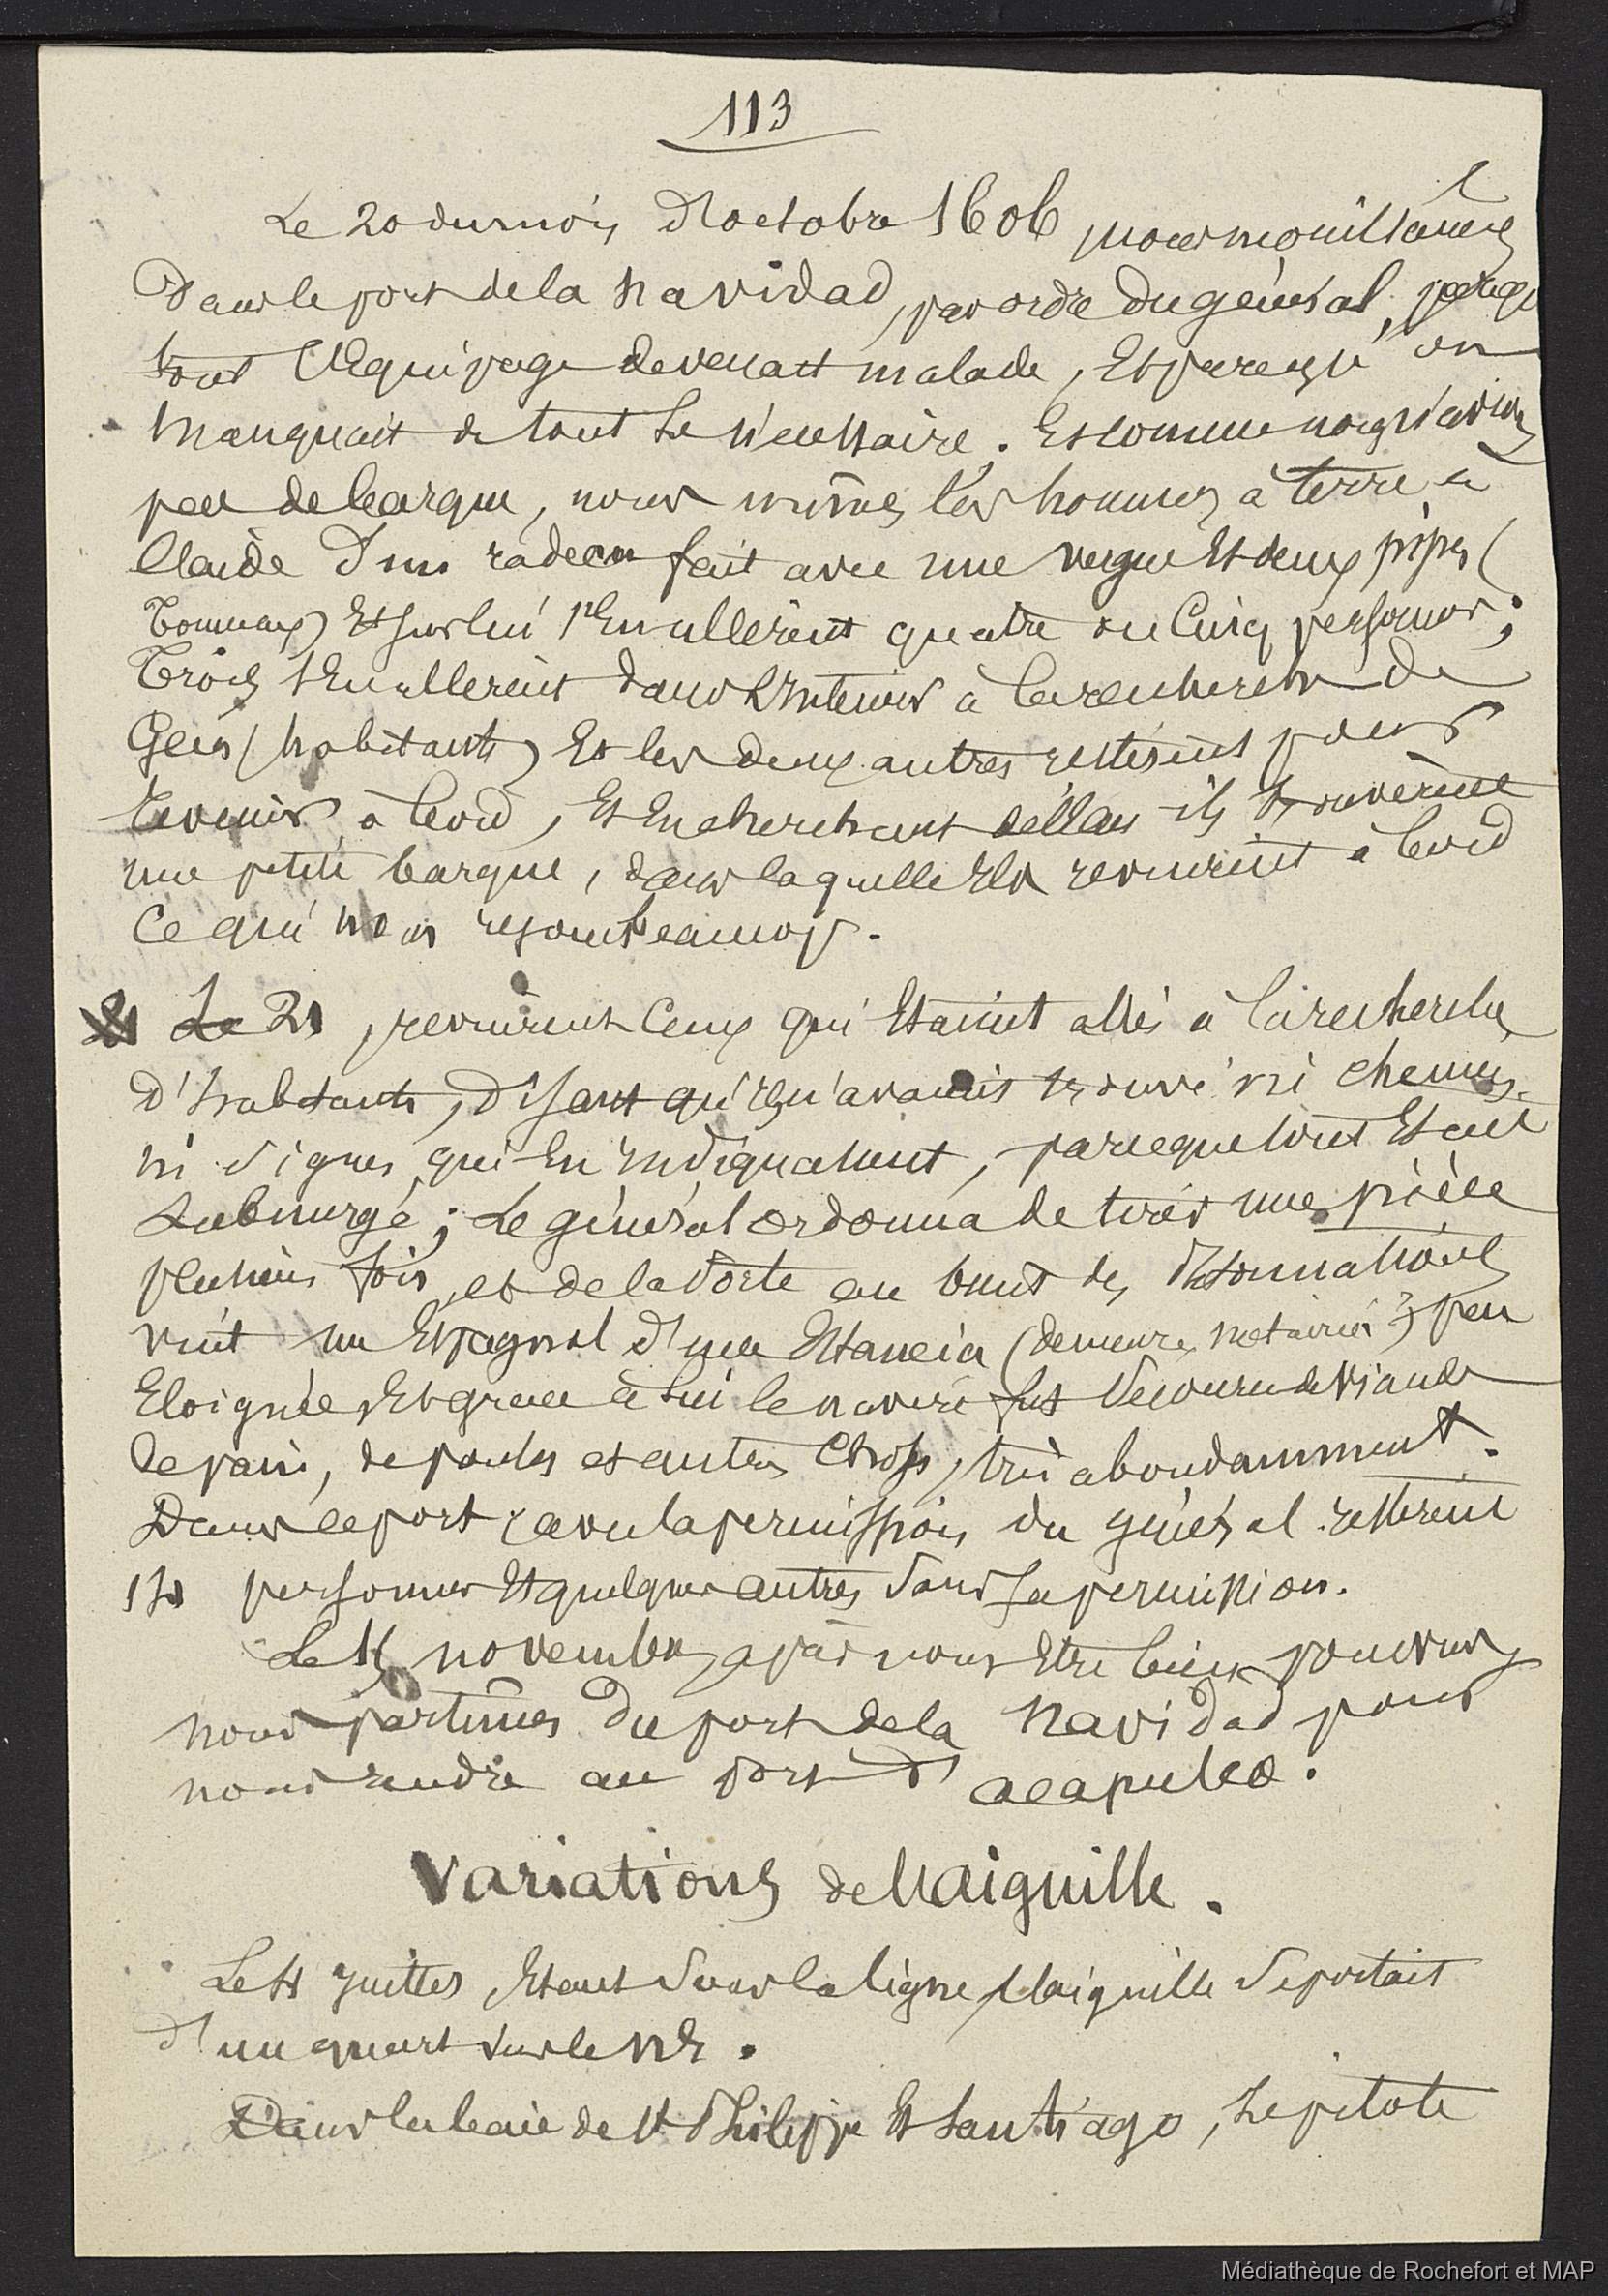 113
Le 20 du mois d'octobre 1606 nous mouillâmes
Dans le port de la Navidad, par ordre du général, parceque
tout l'Equipage devenait malade, Et parcequ'on
manquait de tout le nécessaire. Et comme nous n'avions
pas de barque, nous mîmes les hommes à terre à
l'aide d'un radeau fait avec une vergue Et deux pipes (
Tonneaux) Et sur lui s'En allèrent quatre ou Cinq personnes;
Trois s'En allerent dans l'Interieur à la recherche de
Gens (habitants) Et les deux autres restèrent pour
revenir à bord, Et En cherchant de l'eau ils trouvèrent
une petite barque, dans laquelle Ils revinrent à bord
Ce qui nous rejouit beaucoup.
Le 21, revinrent Ceux qui Etaient allés à la recherche
d'habitants, disant qu'ils n'avaient trouvé ni chemins
ni signes qui En Indiquassent, parceque tout Etait
submergé; Le général ordonna de tirer une pièce
plusieurs fois, et de la sorte au bruit des détonnations
vint un Espagnol d'une Estancia (demeure, metairie?) peu
Eloignée, Et grace à lui le navire fut secouru de viande
de pain, de poules et autres Choses, très abondamment.
Dans ce port, avec la permission du général resterent
personnes Et quelques autres sans sa permission.
Le novembre, après nous Etre bien pourvus
nous partîmes du port de la Navidad pour
nous rendre au port d'acapulco.
Variations de l'aiguille.
Le juillet Etant sous la ligne, l'aiguille se portait
d'un quart sur le NE.
Dans la baie de St Philippe Et Santiago, le pilote
Médiathèque de Rochefort et MAP